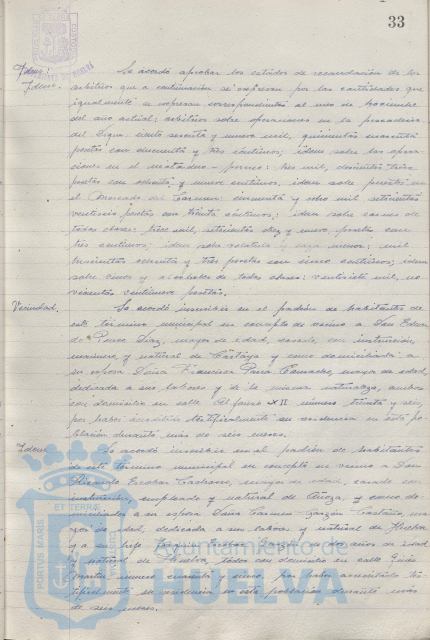 33
Idem:
Idem.
Se acordó aprobar los estados de recaudación de los
arbitrios que a continuación se expresan por las cantidades que
igualmente se expresan correspondientes al mes de Noviembre
del año actual; arbitrios sobre operaciones en la pescadería
del Sagra ciento sesenta y nueve mil, quinientas
pesetas con cincuenta y tres céntimos; idem sobre las opera-
ciones en el matadero - porcino: tres mil, doscientas trece
pesetas con ochenta y nueve céntimos, idem sobre puestos en
el Mercado del Carmen: cincuenta y ocho mil setecientas
veintiseis pesetas con treinta céntimos; idem sobre carnes de
todas clases: trece mil, setecientas diez y nueve pesetas con
tres céntimos; idem sobre volatería y caza menor: mil
trescientas ochenta y tres pesetas con cinco céntimos; idem
sobre vinos y alcoholes de todas clases: veintisiete mil, no-
vecientas veintinueve pesetas.
Vecindad.
Se acordó inscribir en el padrón de habitantes de
este término municipal en concepto de vecino a Don Eduar-
do Ponce Díaz, mayor de edad, casado, con instrucción,
marinero y natural de Cartaya y como domiciliada a
su esposa Doña Francisca Parra Camacho, mayor de edad,
dedicada a sus labores y de la misma naturaleza, ambos
con domicilio en calle Alfonso XII número treinta y seis,
por haber acreditado testificalmente su residencia en esta po-
blación durante más de seis meses.
Idem
Se acordó inscribir en el padrón de habitantes
de este término municipal en concepto de vecino a Don
Ricardo Escobar, mayor de edad, casado con
instrucción, empleado y natural de y como do-
miciliados a su esposa Doña Carmen Garzón Castaño, ma-
yor de edad, dedicada a sus labores y natural de Huelva
y a su hijo Joaquín Escobar Garzón de dos años de edad
y natural de Huelva, todos con domicilio en calle
Martín número cuarenta y cinco, por haber acreditado tes-
tificalmente su residencia en esta población durante más
de seis meses.
PORTUS MARIS ET TERRAE CUSTODIA
Ayuntamiento de
HUELVA